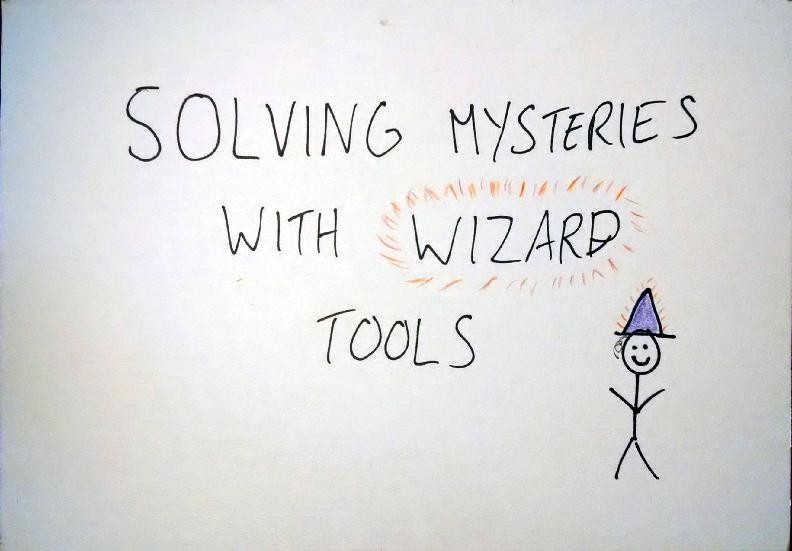 SOLVING MYSTERIES
WITH WIZARD
TOOLS